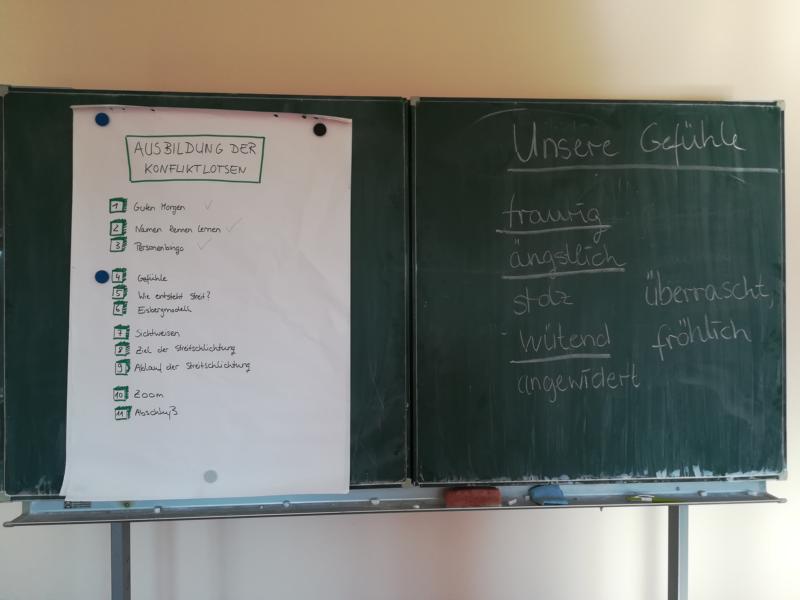 AUSBILDUNG DER
KONFLIKTLOTSEN
1 Guten Morgen ✓
2 Namen kennen lernen ✓
3 Personenbingo ✓
4 Gefühle
5 Wie entsteht Streit?
6 Eisbergmodell
7 Sichtweisen
8 Ziel der Streitschlichtung
9 Ablauf der Streitschlichtung
10 Zoom
11 Abschluß
Unsere Gefühle
traurig
ängstlich
stolz überrascht,
wütend fröhlich
angewidert